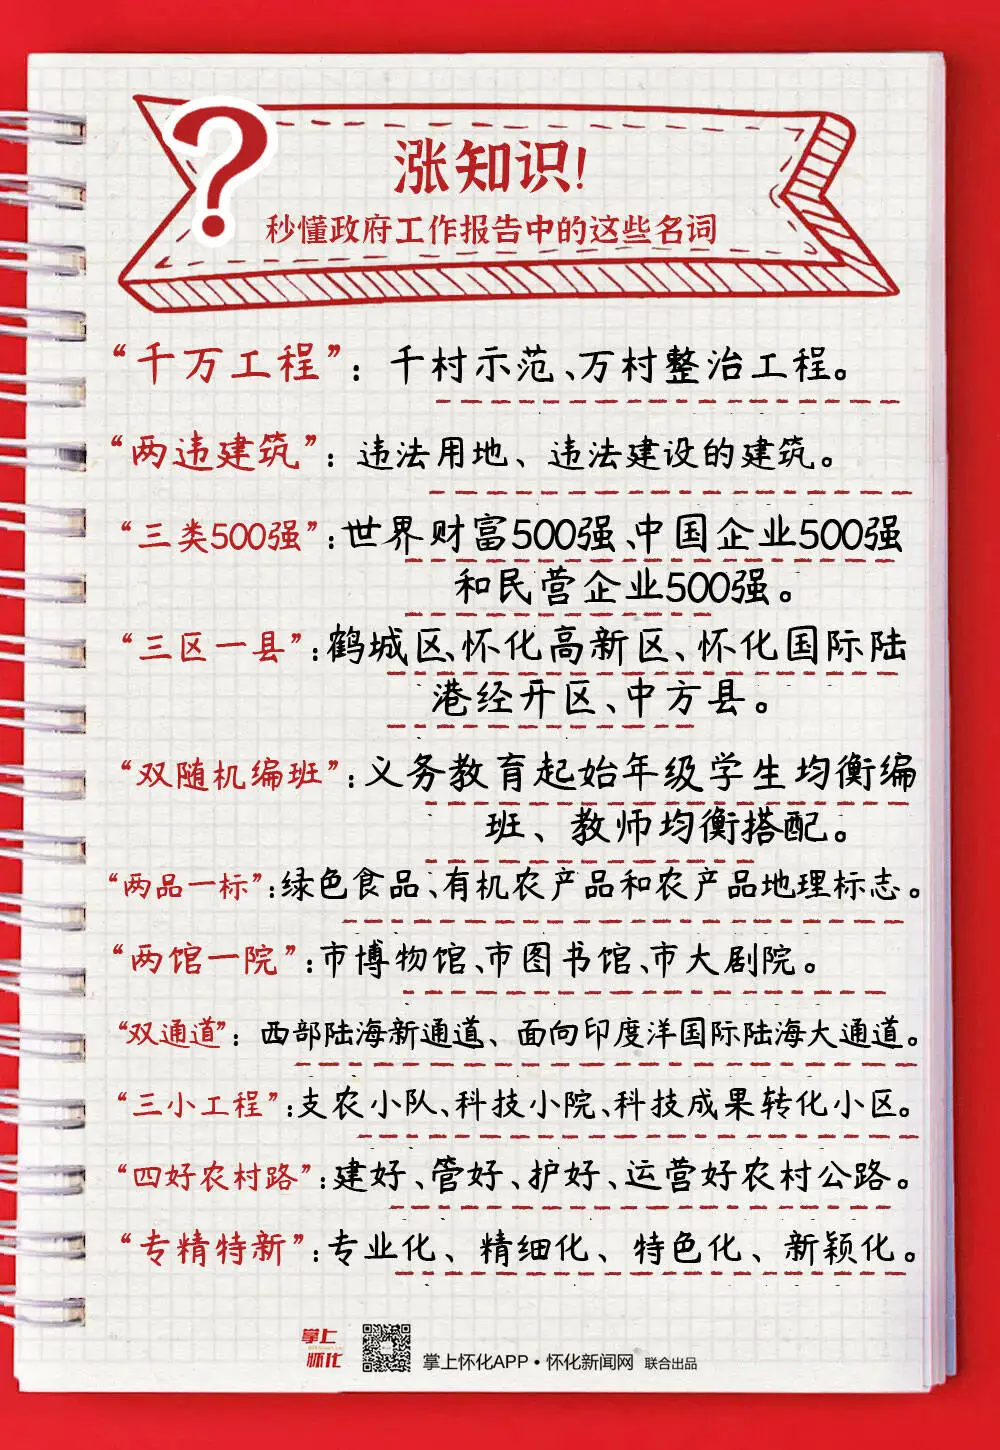 涨知识!
秒懂政府工作报告中的这些名词
“千万工程”：千村示范、万村整治工程。
“两违建筑”：违法用地、违法建设的建筑。
“三类500强”：世界财富500强、中国企业500强
和民营企业500强。
“三区一县”：鹤城区、怀化高新区、怀化国际陆
港经开区、中方县。
“双随机编班”：义务教育起始年级学生均衡编
班、教师均衡搭配。
“两品一标”：绿色食品、有机农产品和农产品地理标志。
“两馆一院”：市博物馆、市图书馆、市大剧院。
“双通道”：西部陆海新通道、面向印度洋国际陆海大通道。
“三小工程”：支农小队、科技小院、科技成果转化小区。
“四好农村路”：建好、管好、护好、运营好农村公路。
“专精特新”：专业化、精细化、特色化、新颖化。
掌上
怀化
掌上怀化APP·怀化新闻网 联合出品